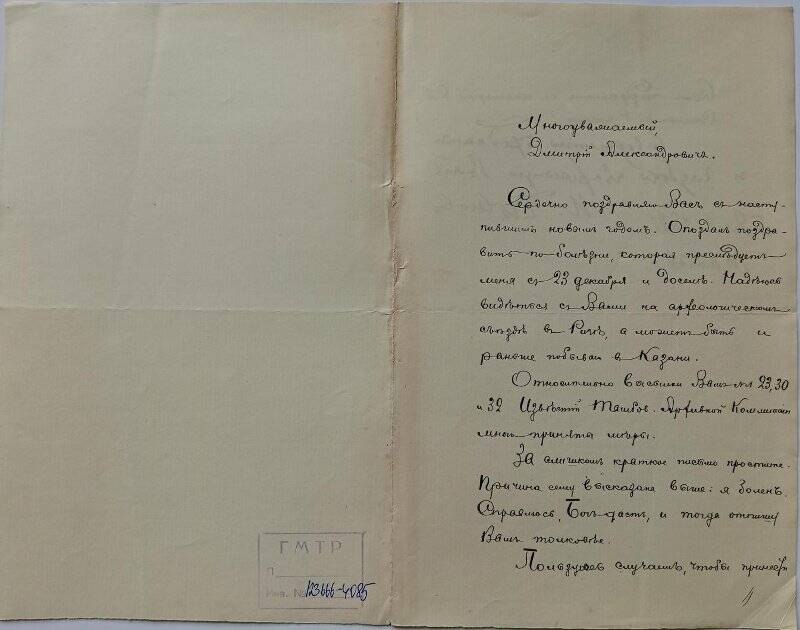 Многоуважаемый,
Дмитрій Александровичъ.
Сердечно поздравляю Васъ съ насту-
пившимъ новымъ годомъ. Опоздалъ поздра-
вить по болѣзни, которая преслѣдуетъ
меня съ 23 декабря и доселѣ. Надѣюсь
видѣться съ Вами на археологическомъ
съѣздѣ въ а можетъ быть и
раньше побываю въ Казани.
Относительно высылки Вамъ №№ 23, 30
и 32 Извѣстій Тамбов. Архивной Коммиссіи
мною приняты мѣры.
За слишкомъ краткое письмо простите.
Причина сему высказана выше: я боленъ.
Справлюсь, Богъ дастъ, и тогда отпишу
Вамъ толковѣе.
Пользуюсь случаемъ, чтобы
ГМТР
П
Инв. № 123666-4085